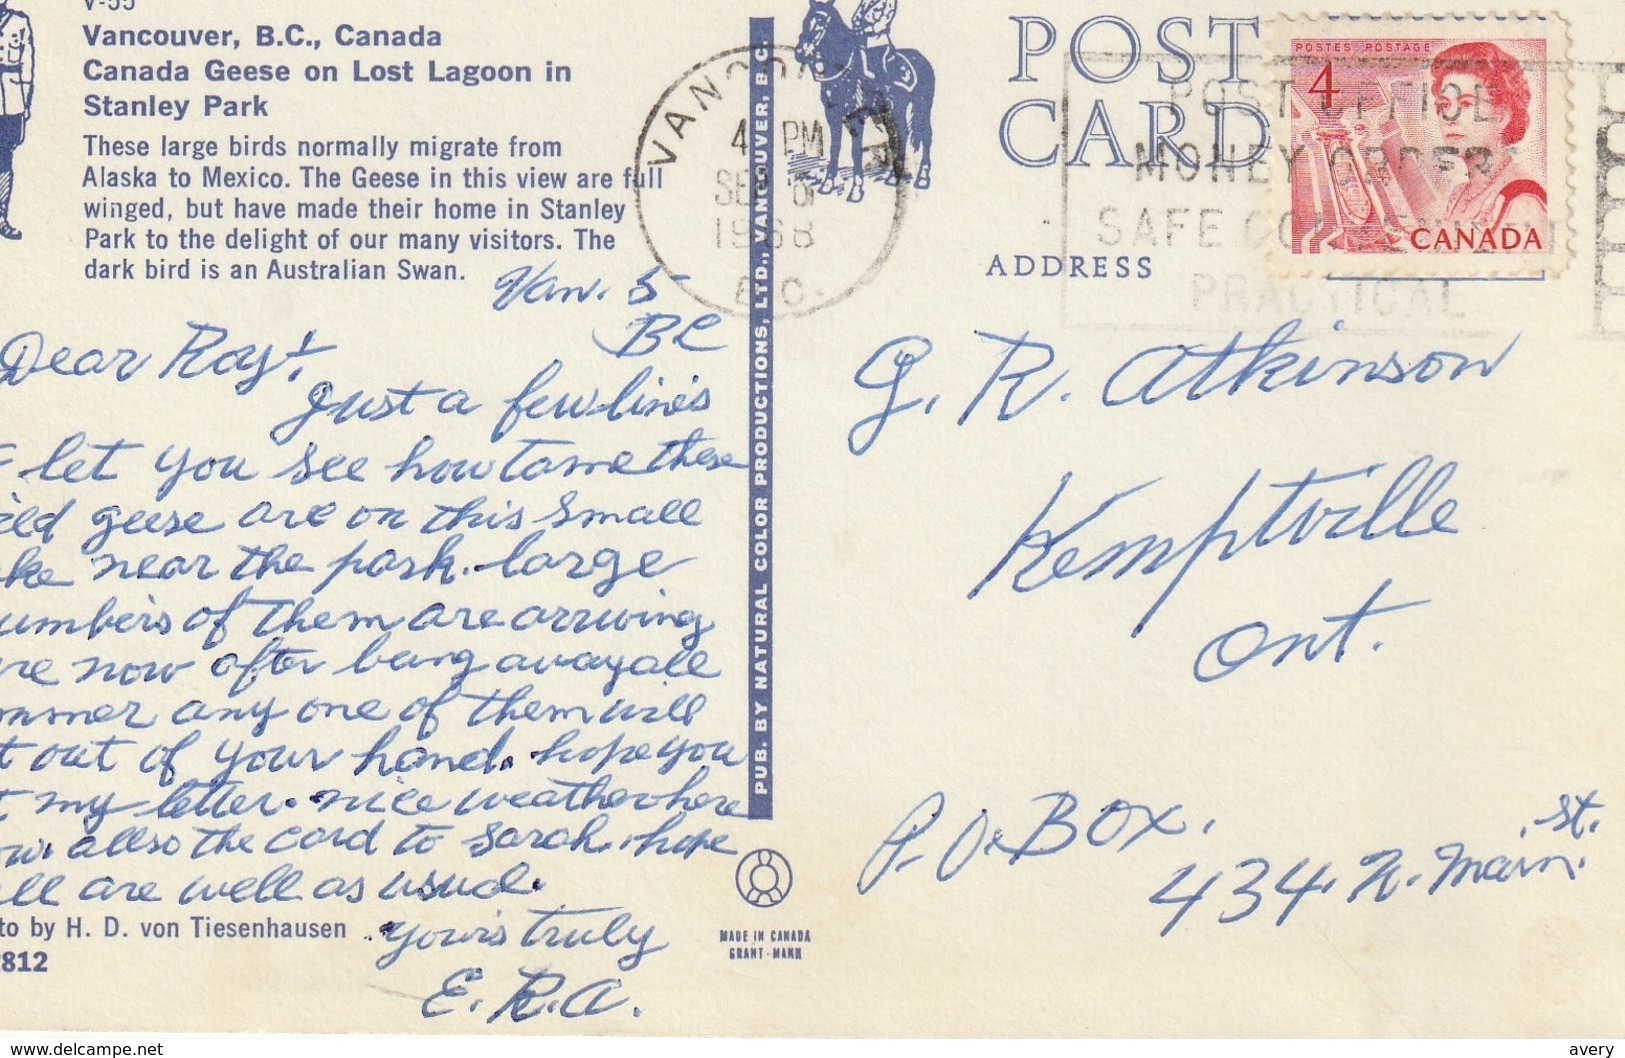 V-55
Vancouver, B.C., Canada
Canada Geese on Lost Lagoon in
Stanley Park
These large birds normally migrate from
Alaska to Mexico. The Geese in this view are full
winged, but have made their home in Stanley
Park to the delight of our many visitors. The
dark bird is an Australian Swan.
Van. 5
BC
Dear Roy.
Just a few lines
let you see how tame these
geese are on this small
ke near the park. large
umbers of them are arriving
re now after being away all
mmer any one of them will
t out of your hand. hope you
t my letter. nice weather here
ow. allso the card to Sarah. hope
all are well as usual.
yours truly
E. R. A.
to by H. D. von Tiesenhausen
812
PUB. BY NATURAL COLOR PRODUCTIONS, LTD., VANCOUVER, B.C.
MADE IN CANADA
GRANT-MANN
VANCOUVER
4 PM
SEP 6
1968
B.C.
POST
CARD
ADDRESS
POST OFFICE
MONEY ORDERS
SAFE CONVENIENT
PRACTICAL
POSTES POSTAGE
4
CANADA
G. R. Atkinson
Kemptville
Ont.
P.O. Box.
434. N. Main. St.
delcampe.net
avery